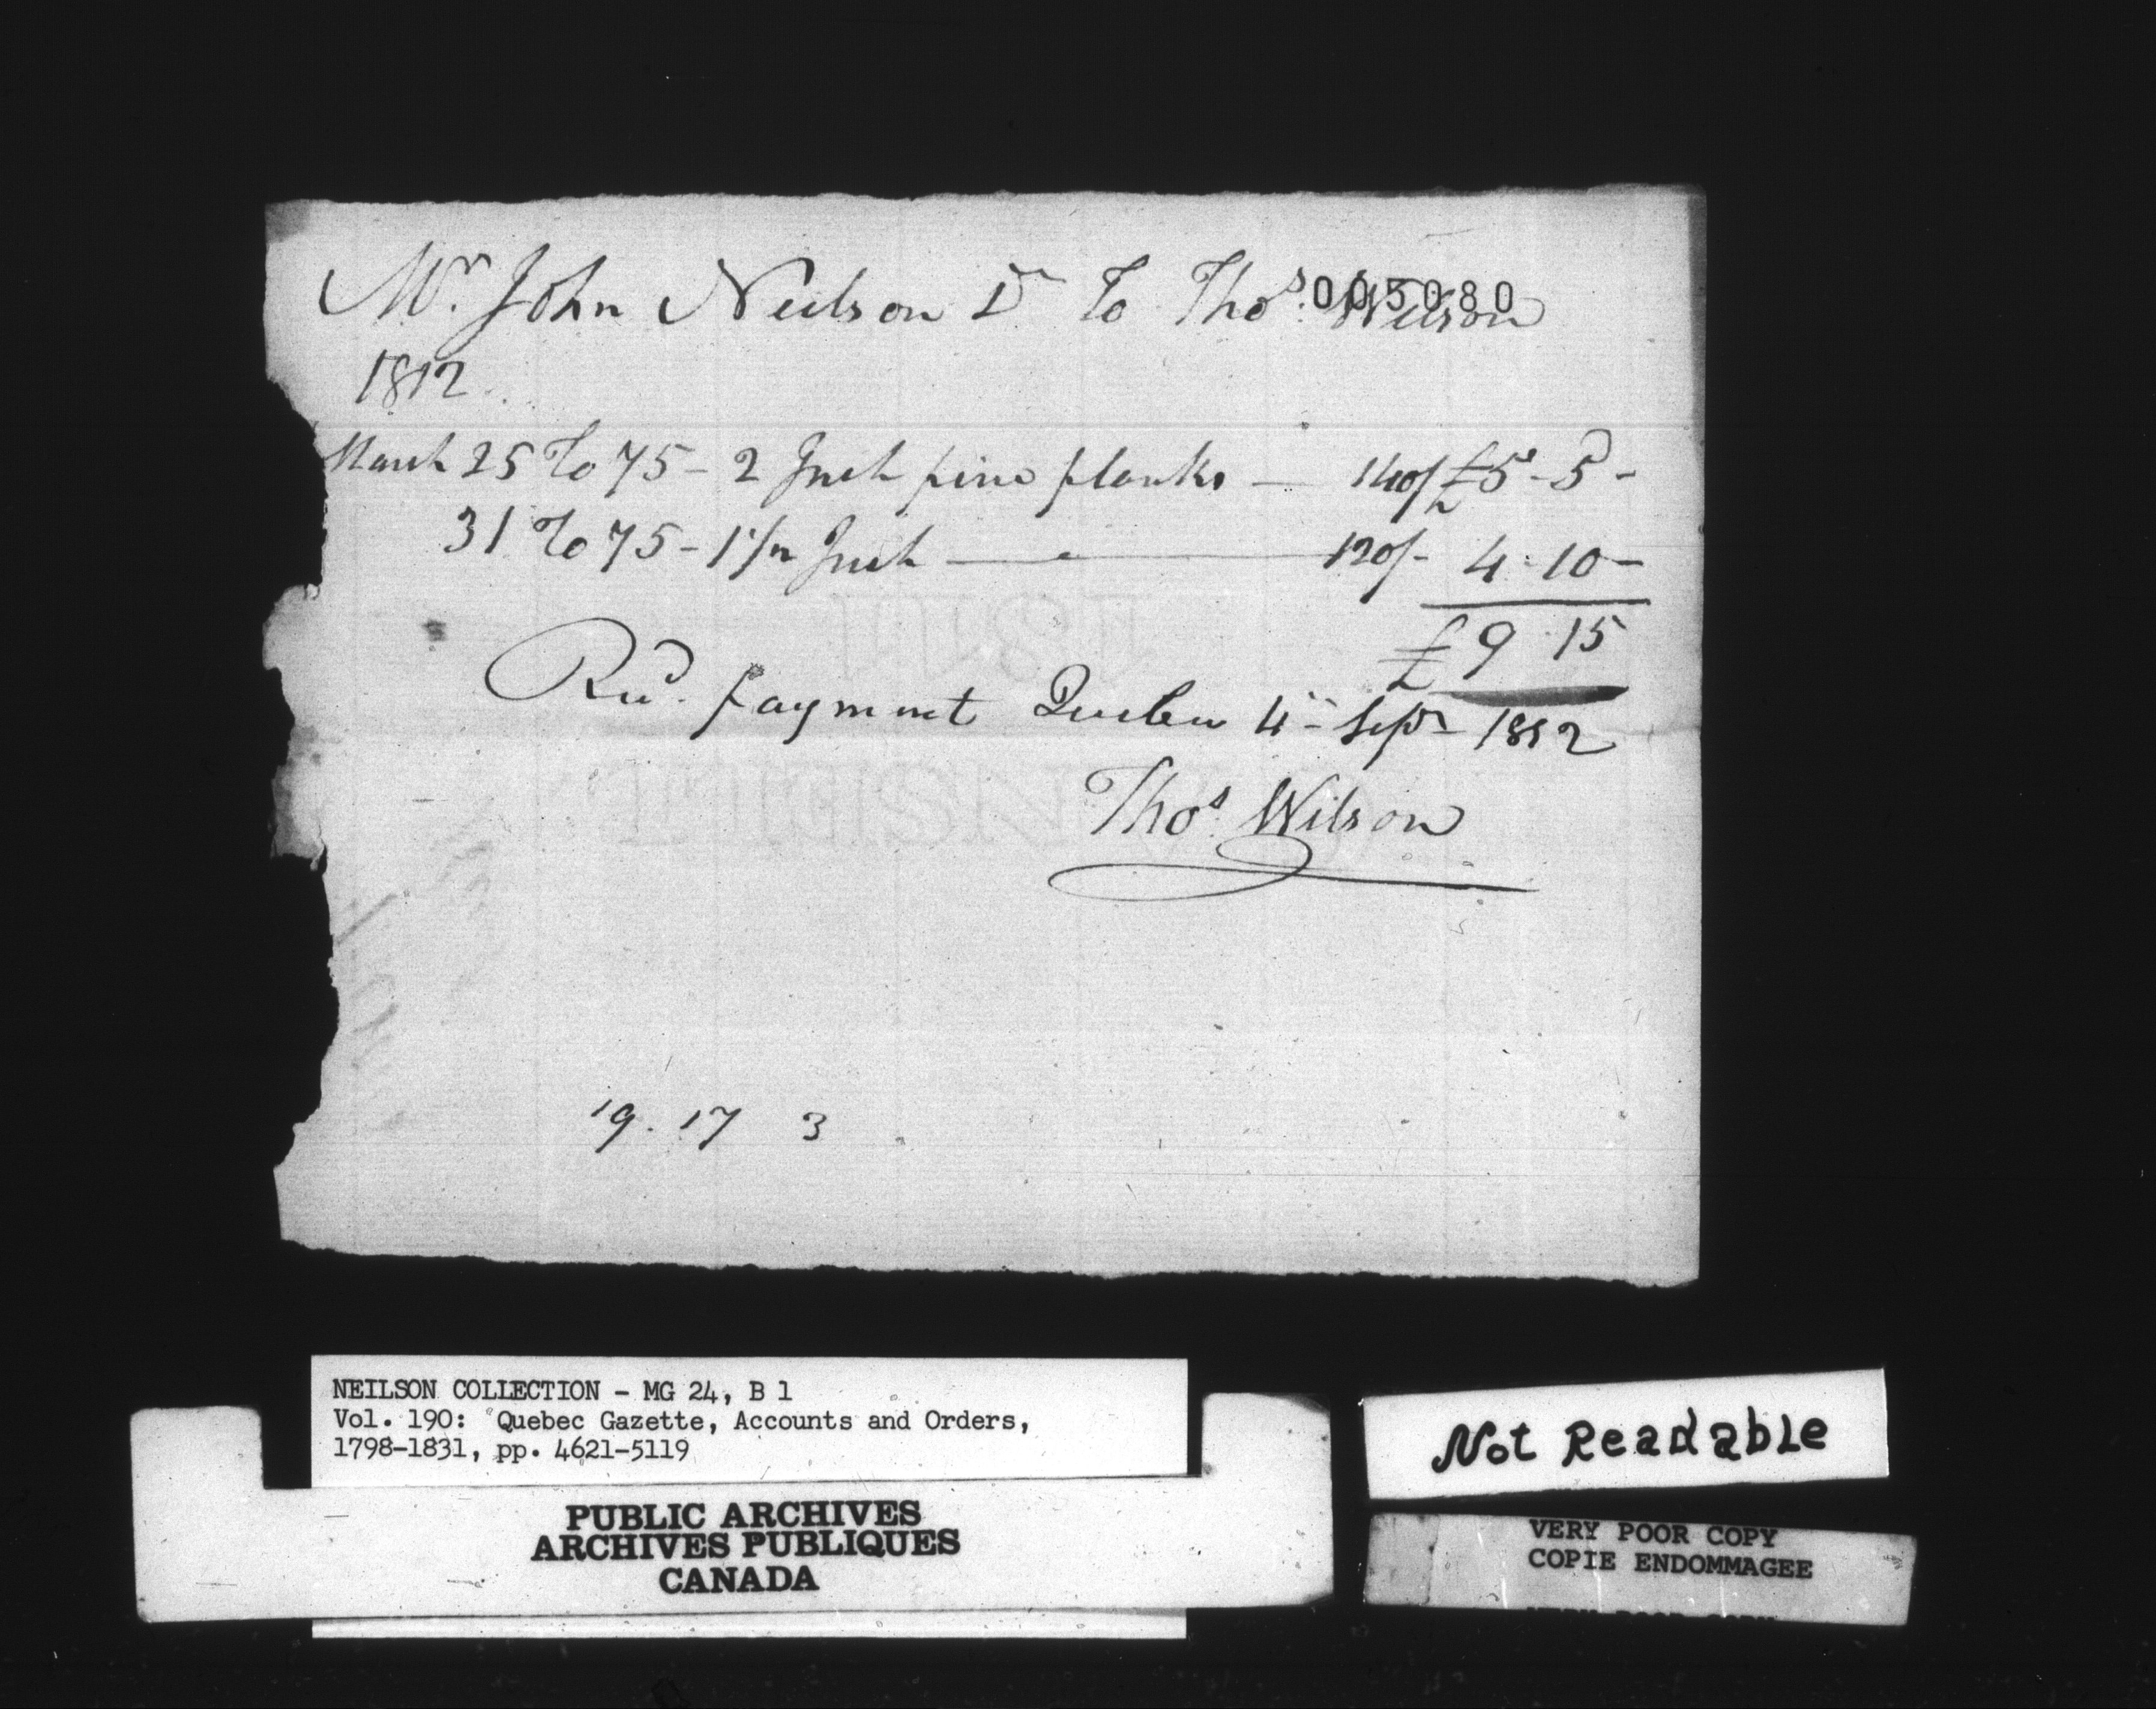 Mr. John Neilson Dr To Thos. Wilson
005080
1812
March 25 To 75 - 2 Inch pine planks — 140/ £5 - 5 -
31 To 75 - 1 1/2 Inch — 120/- 4 - 10 -
£ 9 - 15
Recd. payment Quebec 4th Sepr 1812
Thos. Wilson
19. 17 3
NEILSON COLLECTION - MG 24, B 1
Vol. 190: Quebec Gazette, Accounts and Orders,
1798-1831, pp. 4621-5119
PUBLIC ARCHIVES
ARCHIVES PUBLIQUES
CANADA
Not Readable
VERY POOR COPY
COPIE ENDOMMAGEE